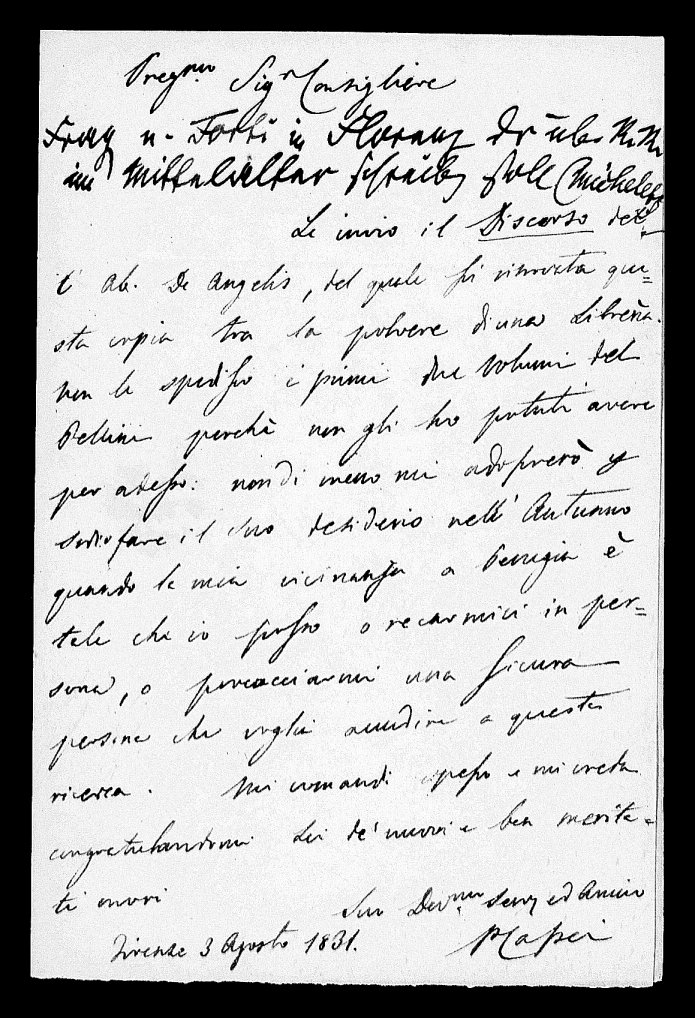 Pregmo Sigr Consigliere
Frag n. Forti in Florenz der über R. R.
im Mittelalter schreib soll (Michelet
Le invio il Discorso del=
l' Ab. De Angelis, del quale fu trovata que=
sta copia tra la polvere di una Libreria.
Non le spedisco i primi due volumi del
Pellini perchè non gli ho potuti avere
per adesso: nondimeno mi adoprerò p
sodisfare il suo desiderio nell' Autunno
quando la mia vicinanza a Perugia è
tale che io posso o recarmici in per=
sona, o procacciarmi una sicura
persona che voglia accudire a questa
ricerca. Mi comandi spesso e mi creda
congratulandomi Lei de' nuovi e ben merita=
ti onori
Suo Devmo Serv ed Amico
Firenze 3 Agosto 1831.